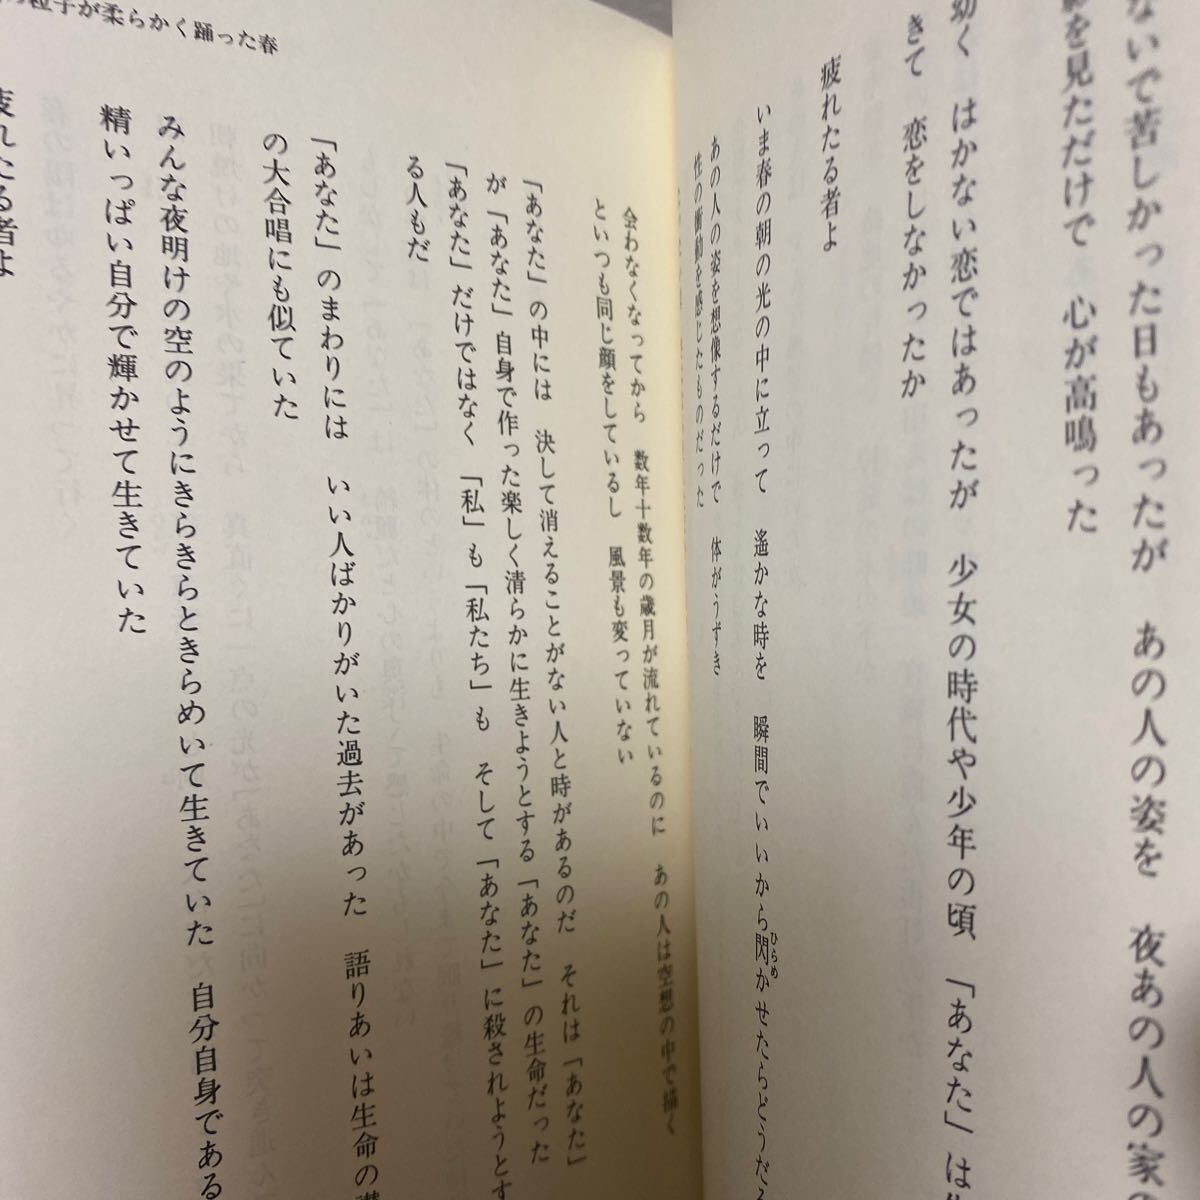 ないで苦しかった日もあったが あの人の姿を 夜あの人の家の
を見ただけで 心が高鳴った
幼く はかない恋ではあったが 少女の時代や少年の頃 「あなた」は
きて 恋をしなかったか
疲れたる者よ
いま春の朝の光の中に立って 遙かな時を 瞬間でいいから閃かせたらどうだろ
ひらめ
あの人の姿を想像するだけで 体がうずき
性の衝動を感じたものだった
会わなくなってから 数年十数年の歳月が流れているのに あの人は空想の中で描く
といつも同じ顔をしているし 風景も変っていない
「あなた」の中には 決して消えることがない人と時があるのだ それは「あなた」
が「あなた」自身で作った楽しく清らかに生きようとする「あなた」の生命だった
「あなた」だけではなく 「私」も「私たち」も そして「あなた」に殺されようとす
る人もだ
「あなた」のまわりには いい人ばかりがいた過去があった 語りあいは生命の讃
の大合唱にも似ていた
みんな夜明けの空のようにきらきらときらめいて生きていた 自分自身である
精いっぱい自分で輝かせて生きていた
疲れたる者よ
粒子が柔らかく踊った春